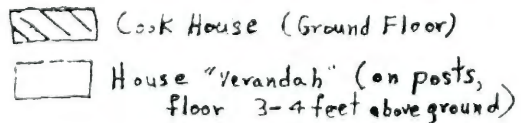 Cook House (Ground Floor)
House "Verandah" (on posts,
floor 3-4 feet above ground)